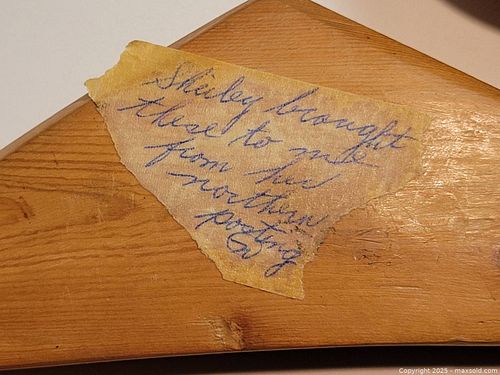 Shirley brought
these to me
from her
northern
posting
Copyright 2025 - maxsold.com